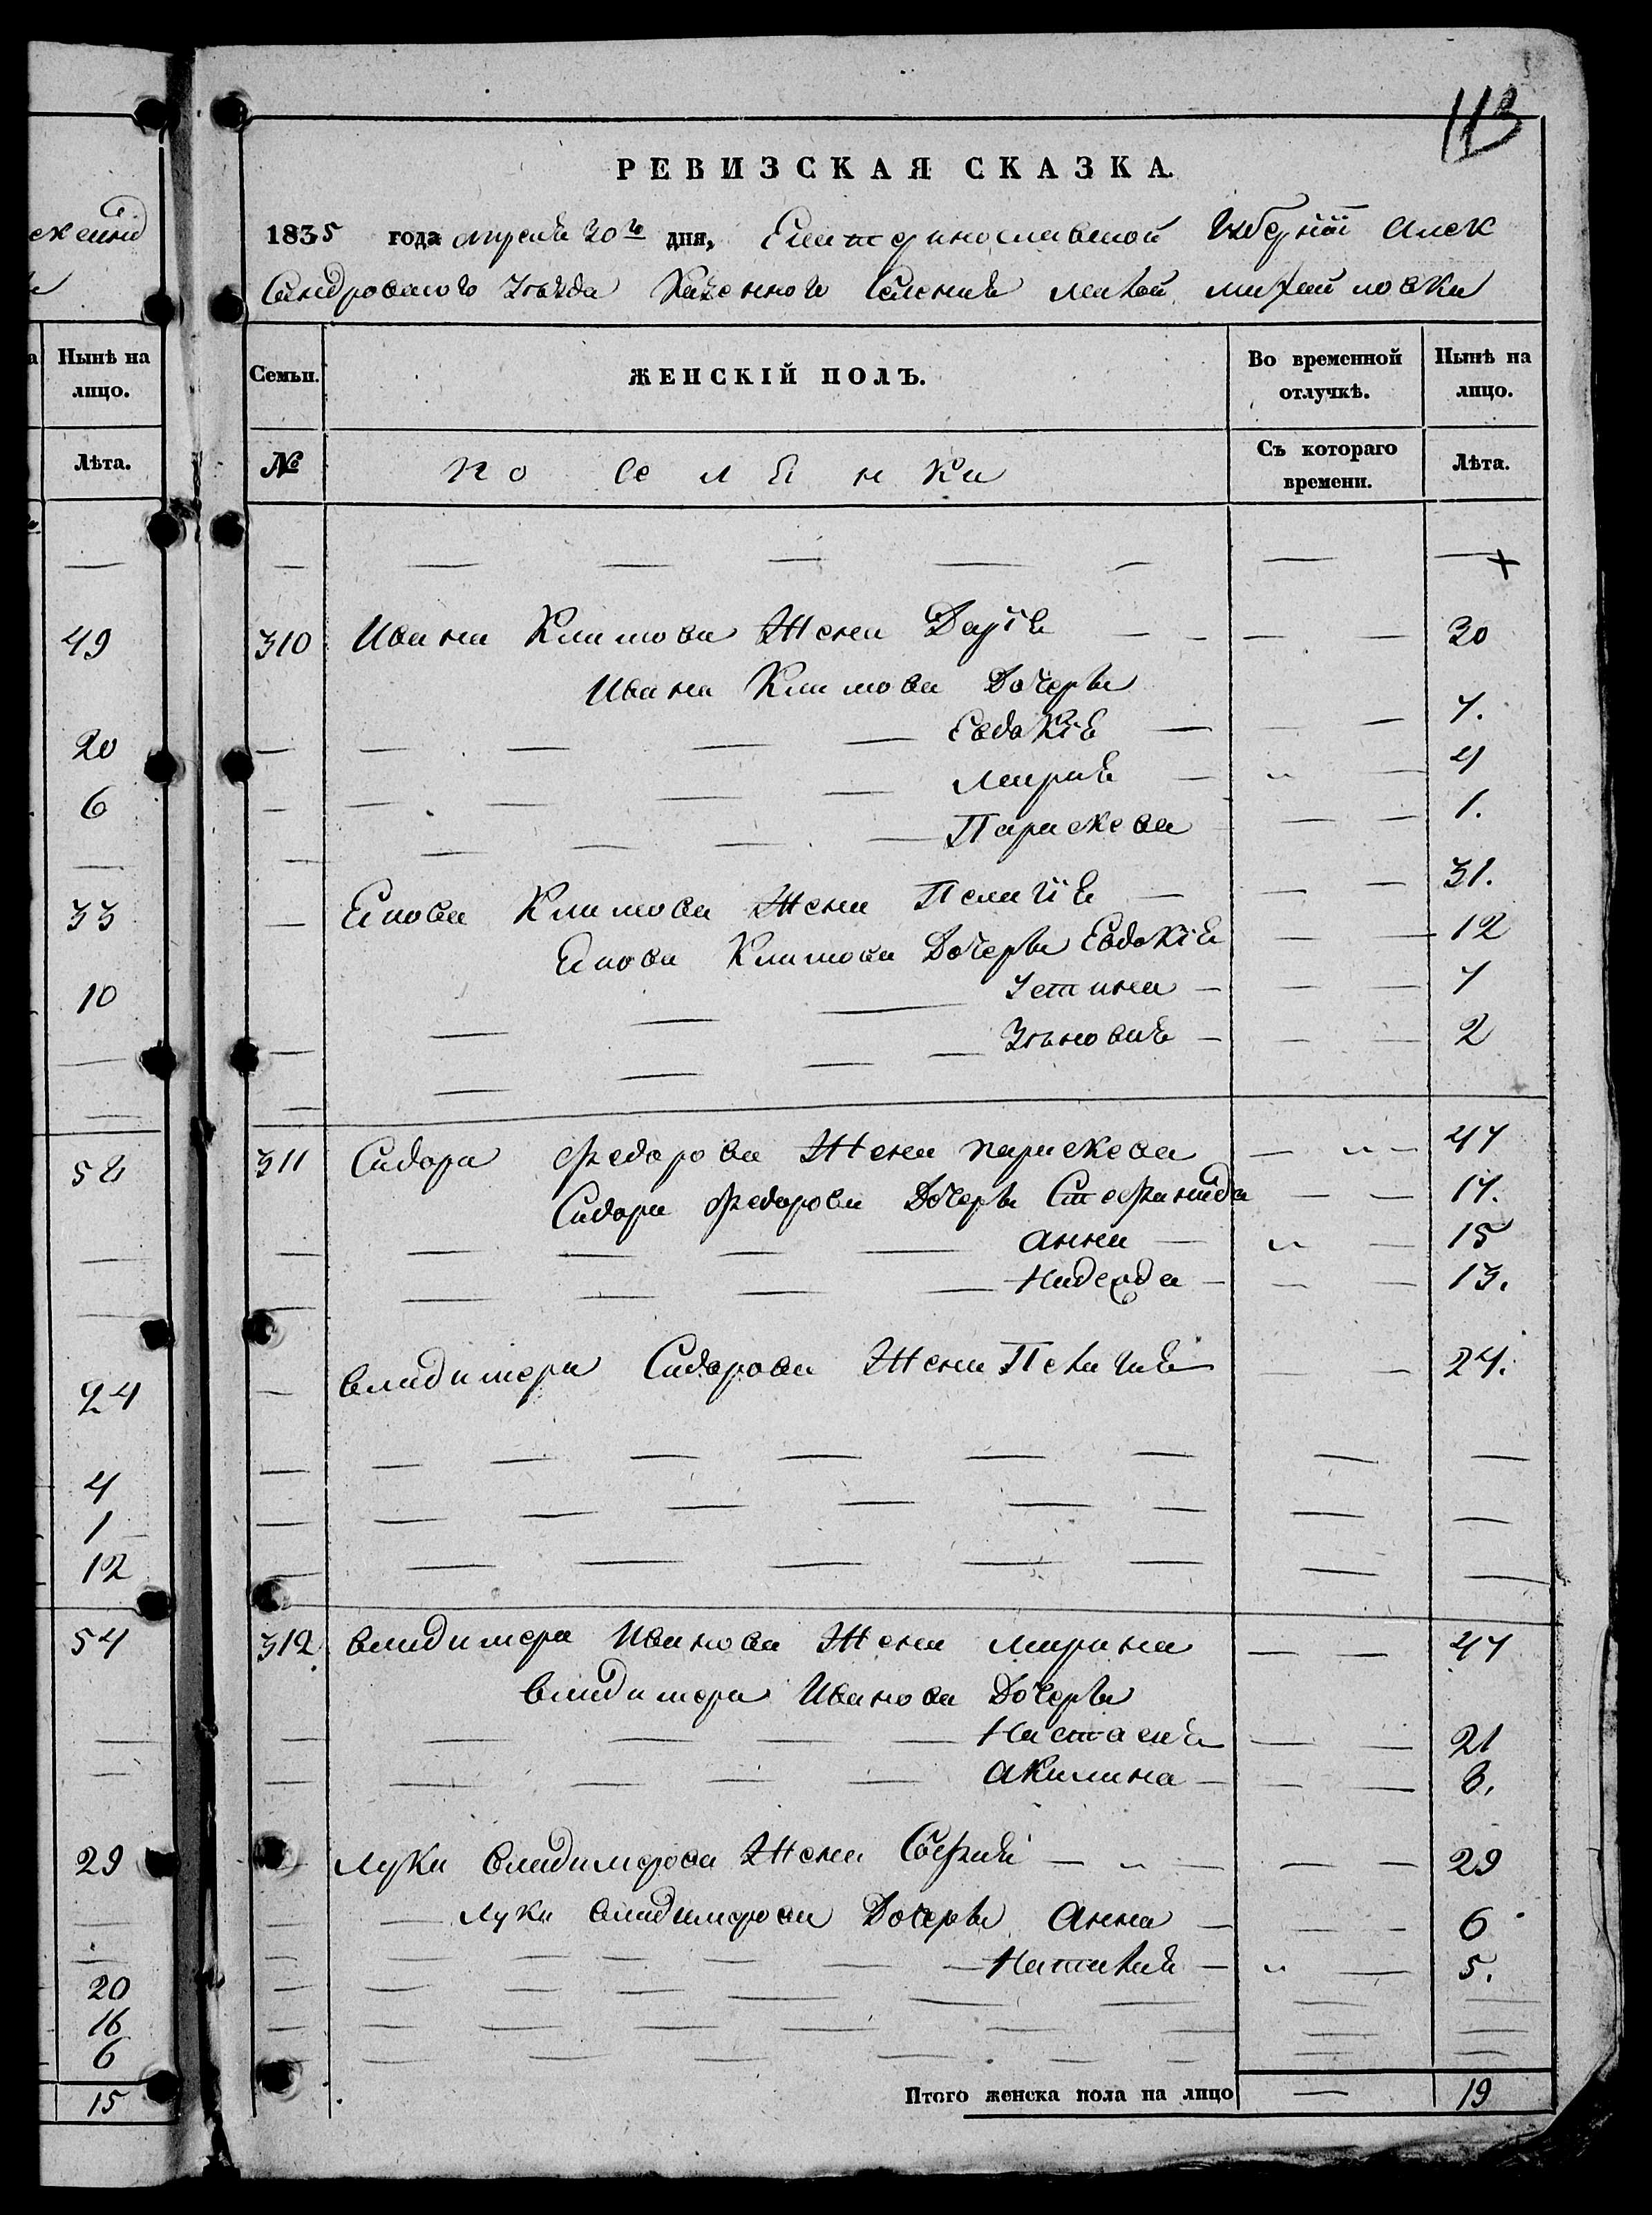 113
скаяни
РЕВИЗСКАЯ СКАЗКА.
1835 года апреля 20го дня, Екатеринославской Губернии Алек
сандровского Уезда Казенного Селения малой михайловки
Нынѣ на лицо.
Лѣта.
49
20
6
33
10
58
24
4
1
12
54
29
20
16
6
15
Семьи. ЖЕНСКІЙ ПОЛЪ. Во временной отлучкѣ. Нынѣ на лицо.
№ по се л я н ки Съ котораго времени. Лѣта.
310 Ивана Климова Жена Дарія 30
Ивана Климова Дочери
Евдокія 7.
Мария 4
Параскева 1.
Якова Климова Жена Пелагія 31.
Якова Климова Дочери Евдокія 12
Устина 7
Зѣновия 2
311 Сидора Федорова Жена параскева 47
Сидора Федорова Дочери Стефанида 17.
Анна 15
Надежда 13.
Владимера Сидорова Жена Пелагия 27.
312 Владимера Иванова Жена марина 47
Владимера Иванова Дочери
Настасия 21
Акилина 8.
Луки Владимерова Жена София 29
Луки Владимерова Дочери Анна 6
Наталия 5.
Итого женска пола на лицо 19